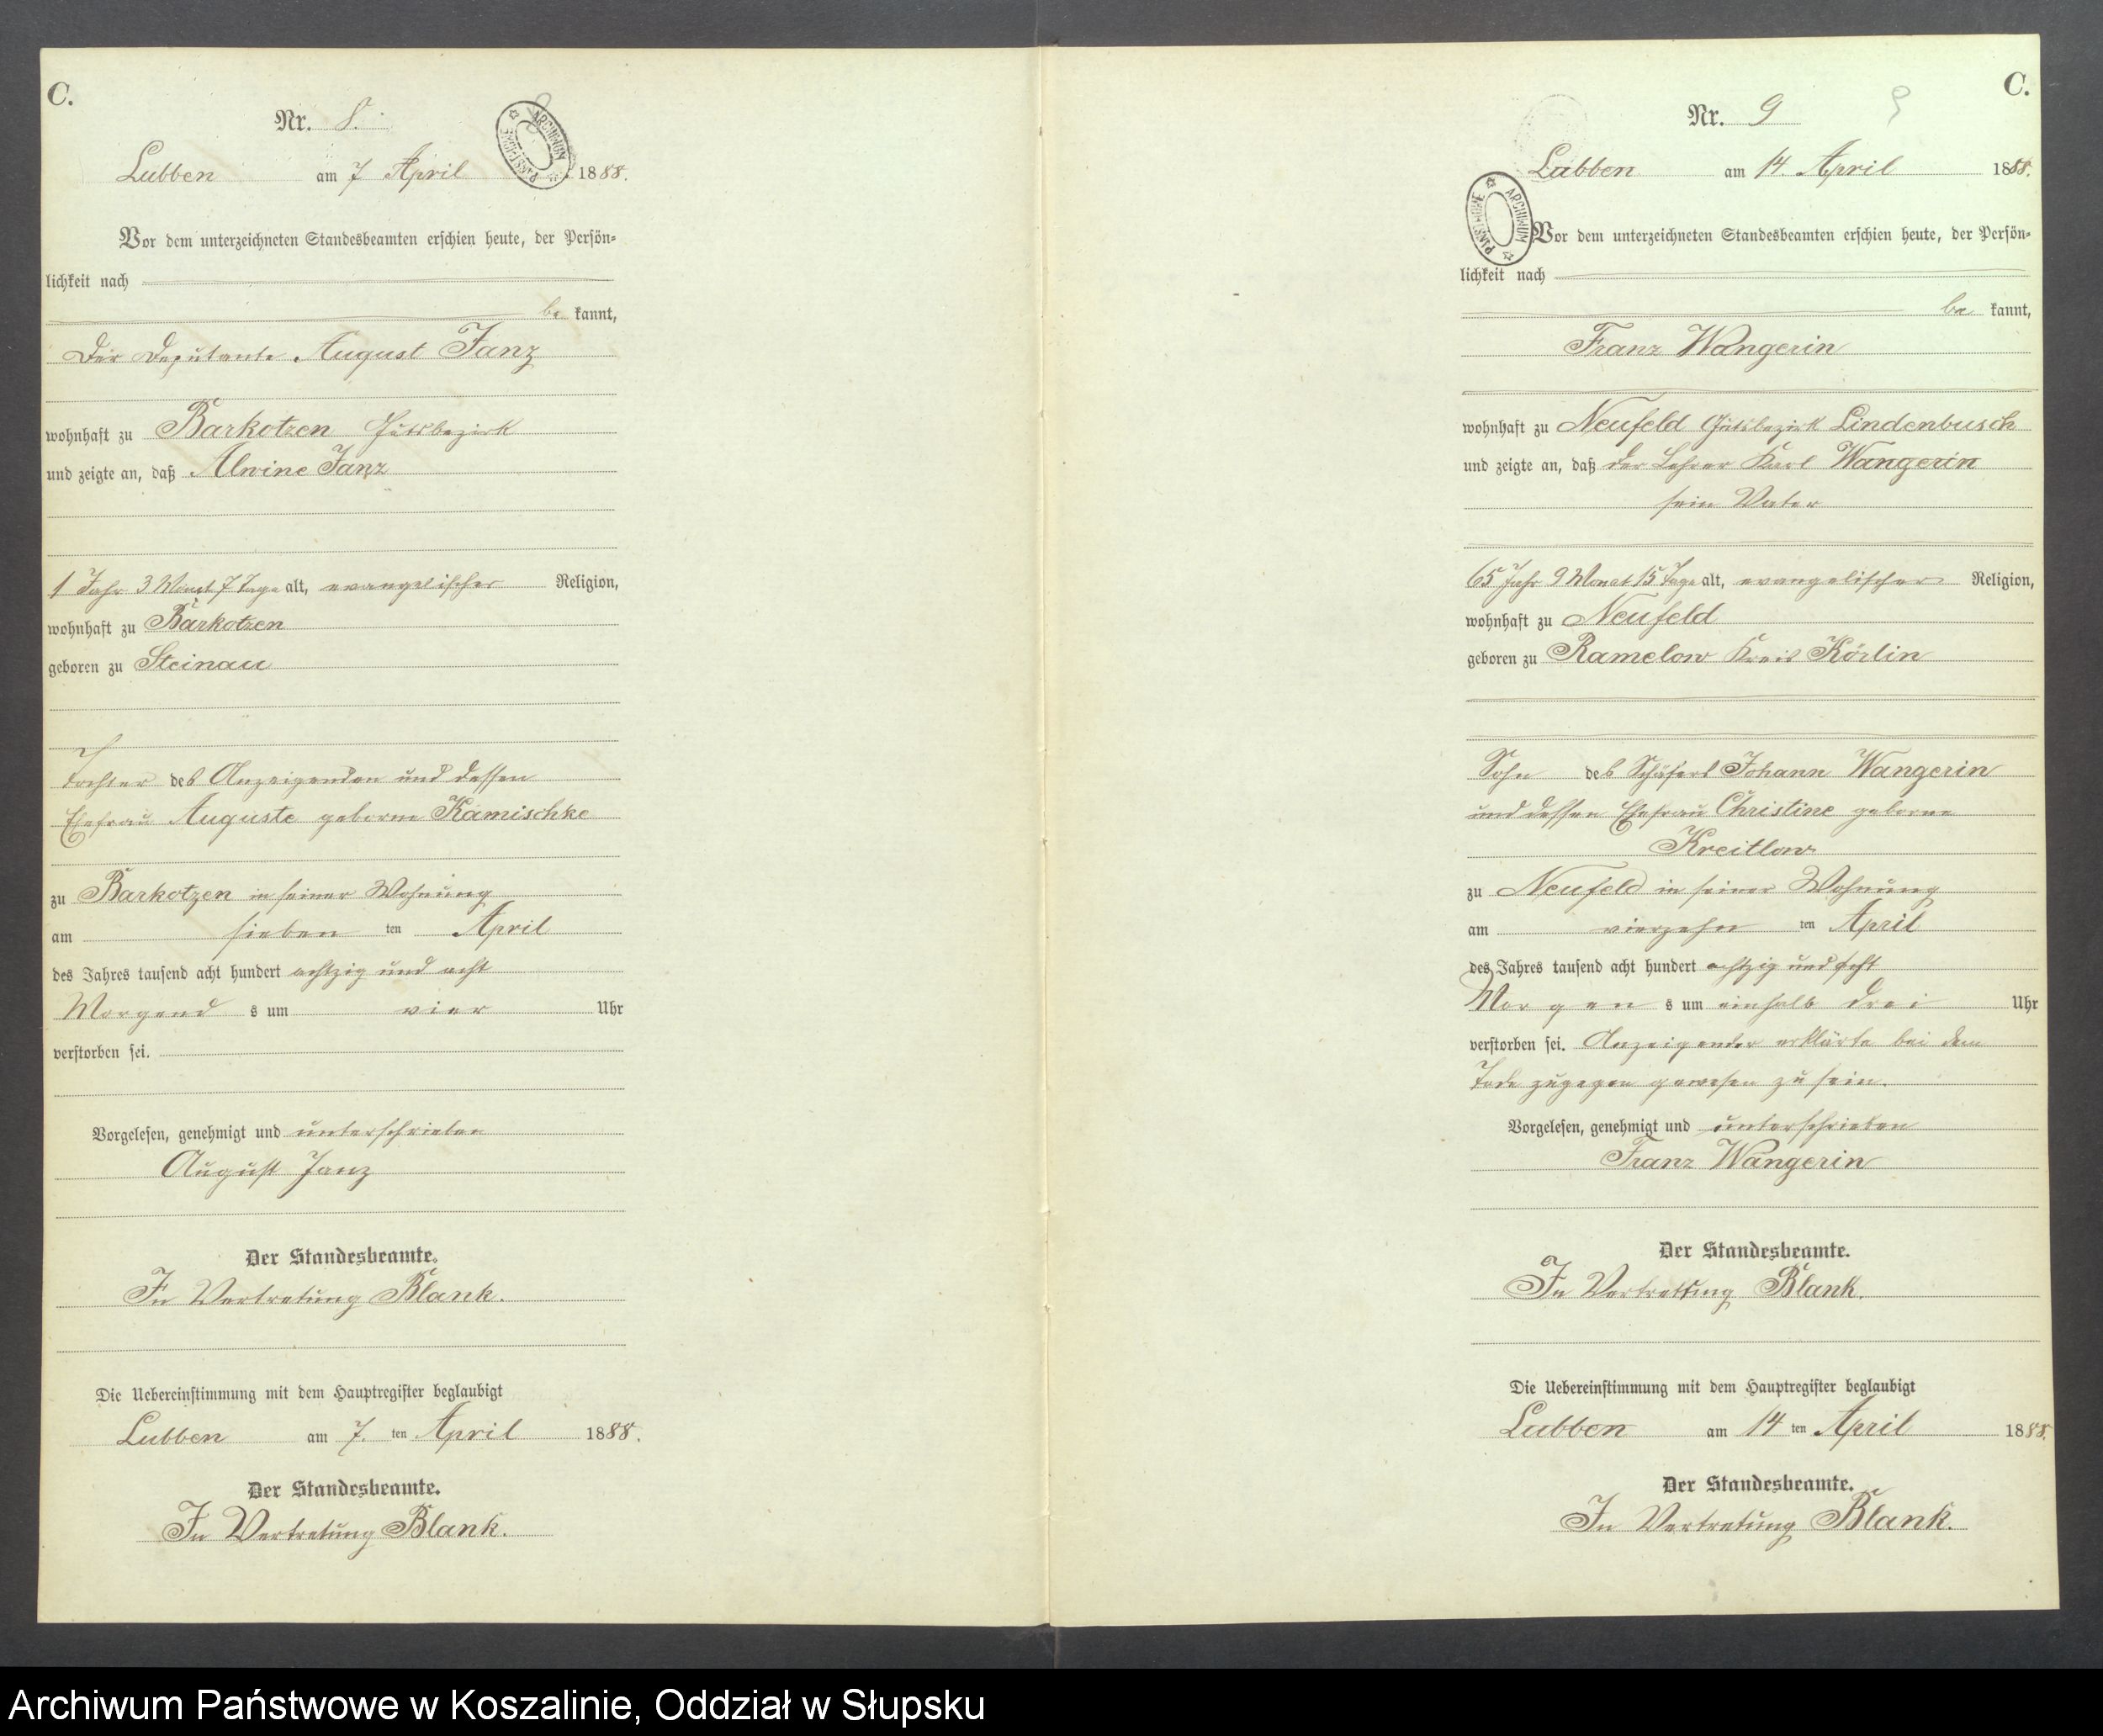 C.
Nr. 8.
8
ARCHIWUM PAŃSTWOWE
Lubben am 7 April 1888.
Vor dem unterzeichneten Standesbeamten erschien heute, der Persön-
lichkeit nach
be kannt,
Der Deputante August Janz
wohnhaft zu Barkotzen Gutsbezirk
und zeigte an, daß Alwine Janz
1 Jahr 3 Monat 7 Tage alt, evangelischer Religion,
wohnhaft zu Barkotzen
geboren zu Steinau
Tochter des Anzeigenden und dessen
Ehefrau Auguste geborne Kamischke
zu Barkotzen in seiner Wohnung
am sieben ten April
des Jahres tausend acht hundert achtzig und acht
Morgend s um vier Uhr
verstorben sei.
Vorgelesen, genehmigt und unterschrieben
August Janz
Der Standesbeamte.
In Vertretung Blank.
Die Uebereinstimmung mit dem Hauptregister beglaubigt
Lubben am 7. ten April 1888.
Der Standesbeamte.
In Vertretung Blank.
C.
Nr. 9
9
Lubben am 14. April 1888.
ARCHIWUM PAŃSTWOWE
Vor dem unterzeichneten Standesbeamten erschien heute, der Persön-
lichkeit nach
be kannt,
Franz Wangerin
wohnhaft zu Neufeld Gutsbezirk Lindenbusch
und zeigte an, daß der Lehrer Karl Wangerin
sein Vater
65 Jahr 9 Monat 15 Tage alt, evangelischer Religion,
wohnhaft zu Neufeld
geboren zu Ramelow Kreis Körlin
Sohn des Schäfers Johann Wangerin
und dessen Ehefrau Christine geborne
Kreitlow
zu Neufeld in seiner Wohnung
am vierzehn ten April
des Jahres tausend acht hundert achtzig und acht
Morgen s um einhalb drei Uhr
verstorben sei. Anzeigender erklärte bei dem
Tode zugegen gewesen zu sein.
Vorgelesen, genehmigt und unterschrieben
Franz Wangerin
Der Standesbeamte.
In Vertretung Blank.
Die Uebereinstimmung mit dem Hauptregister beglaubigt
Lubben am 14 ten April 1888.
Der Standesbeamte.
In Vertretung Blank.
Archiwum Państwowe w Koszalinie, Oddział w Słupsku